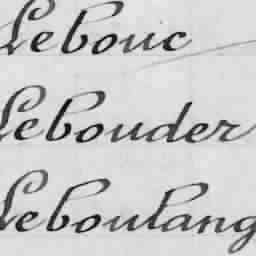 Lebouc
Lebouder
Leboulang